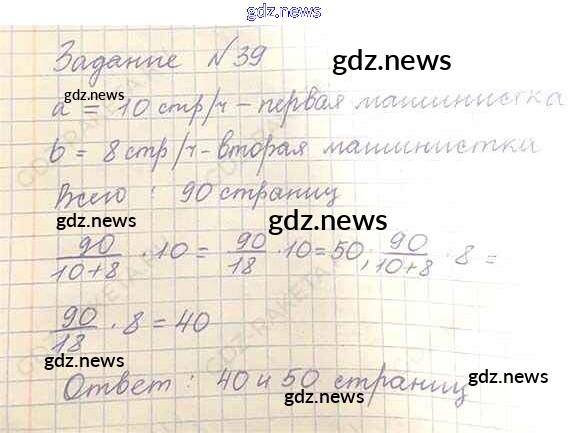 gdz.news
Задание №39
gdz.news
gdz.news
a = 10 стр/ч - первая машинистка
gdz.news
b = 8 стр/ч - вторая машинистка
Всего : 90 страниц
gdz.news
gdz.news
90/10+8 · 10 = 90/18 · 10 = 50; 90/10+8 · 8 =
gdz.news
90/18 · 8 = 40
gdz.news
Ответ : 40 и 50 страниц
gdz.news
gdz.news